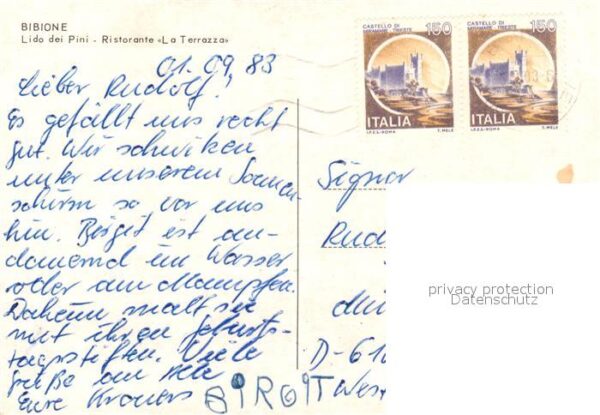 BIBIONE
Lido dei Pini - Ristorante «La Terrazza»
01.09.83
Lieber Rudolf!
Es gefällt uns recht
gut. Wir schwitzen
unter unserem Sonnen-
schirm so vor uns
hin. Birgit ist an-
dauernd im Wasser
oder am Mampfen.
Daheim malt sie
mit ihren Geburts-
tagsstiften. Viele
Grüße an alle
Eure Kroners
BIRGIT
CASTELLO DI
MIRAMARE - TRIESTE
150
ITALIA
I.P.Z.S.-ROMA
T. MELE
CASTELLO DI
MIRAMARE - TRIESTE
150
ITALIA
I.P.Z.S.-ROMA
T. MELE
Signor
D-61
Wes
privacy protection
Datenschutz